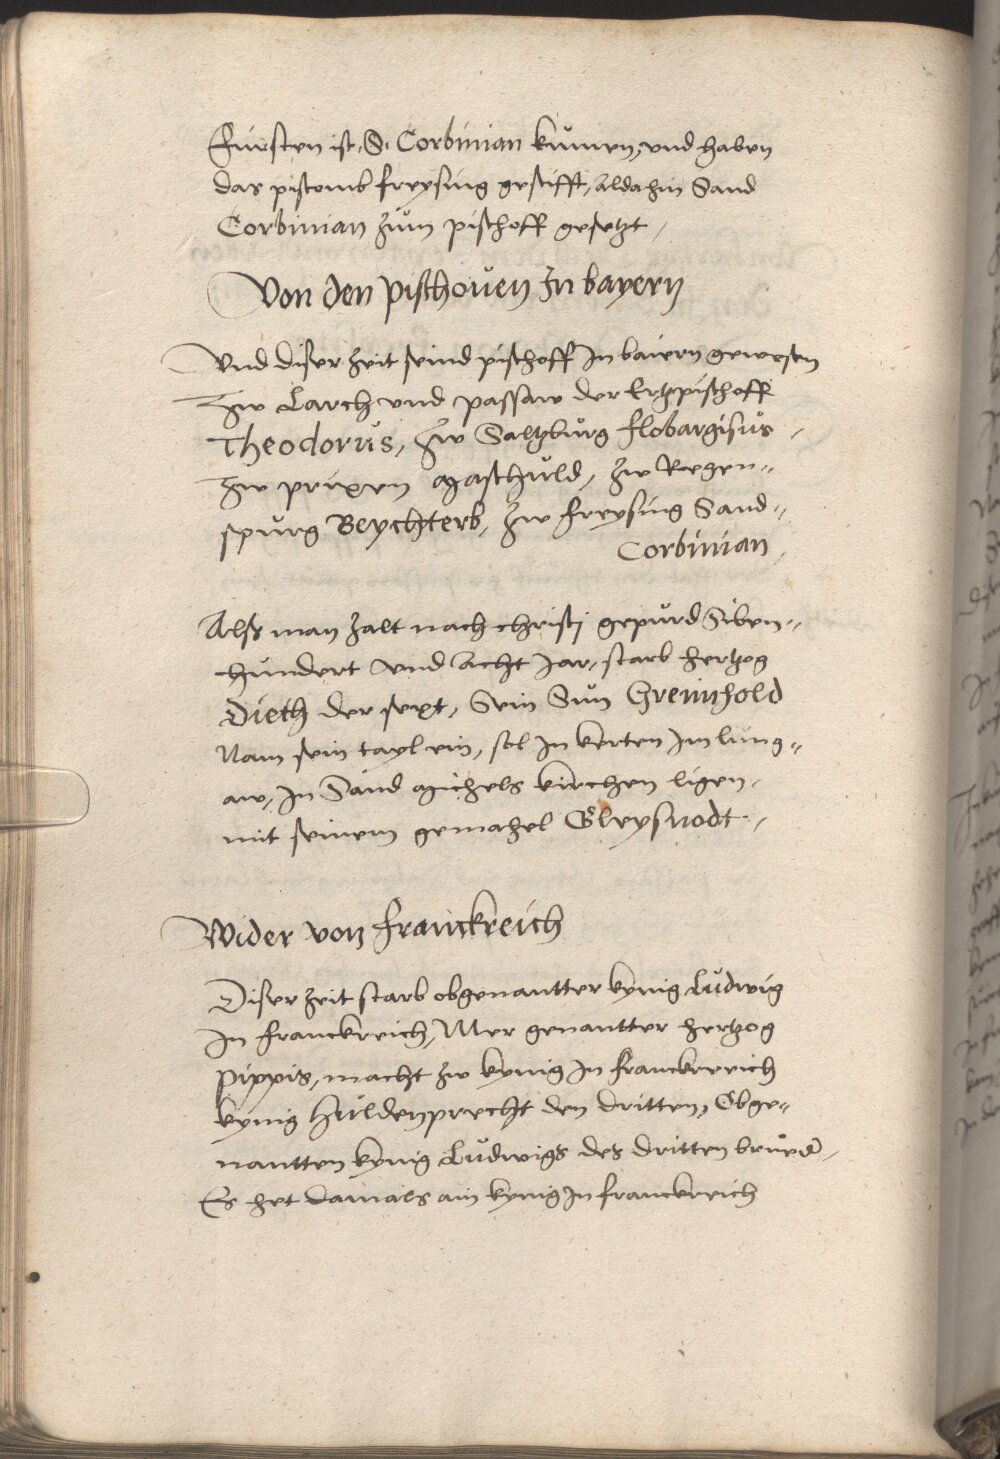 Fürsten ist S. Corbinian kumen, und haben
das pistomb freysing gestifft, Aldahin Sand
Corbinian züm pischoff gesetzt,
Von den pischoven In bayern
Vnd diser zeit seind pischoff In baiern gewesen
Zw Larch und passaw der Ertzpischoff
Theodorus, Zw Saltzburg flobargisus,
Zw prixen Maschuld, Zw Regen-
spurg Beychterb, Zw freysing Sand-
Corbinian,
Alss man zalt nach christj gepurd Siben-
hundert und Acht Jar, starb hertzog
Dieth der sext, Sein Sun Greimhold
Nam sein tayl ein, sol In kerten Im lung-
aw, In Sand Michels kirchen ligen,
mit seinem gemahel Gleysnodt,
Wider von Franckreich
Diser Zeit starb obgenantter kynig Ludwig
In franckreich, Mer genantter hertzog
Pippis, macht zw kynig In franckreich
kynig Huldenprecht den dritten, Obge-
nantten kynig Ludwigs des dritten brueder,
Es het damals ain kynig In franckreich